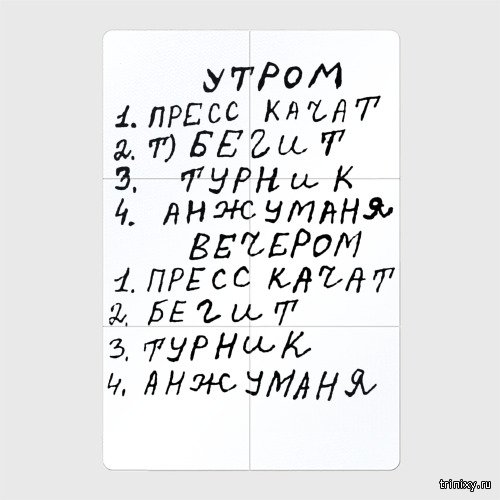 УТРОМ
1. ПРЕСС КАЧАТ
2. Т) БЕГИТ
3. ТУРНИК
4. АНЖУМАНЯ
ВЕЧЕРОМ
1. ПРЕСС КАЧАТ
2. БЕГИТ
3. ТУРНИК
4. АНЖУМАНЯ
trinixy.ru